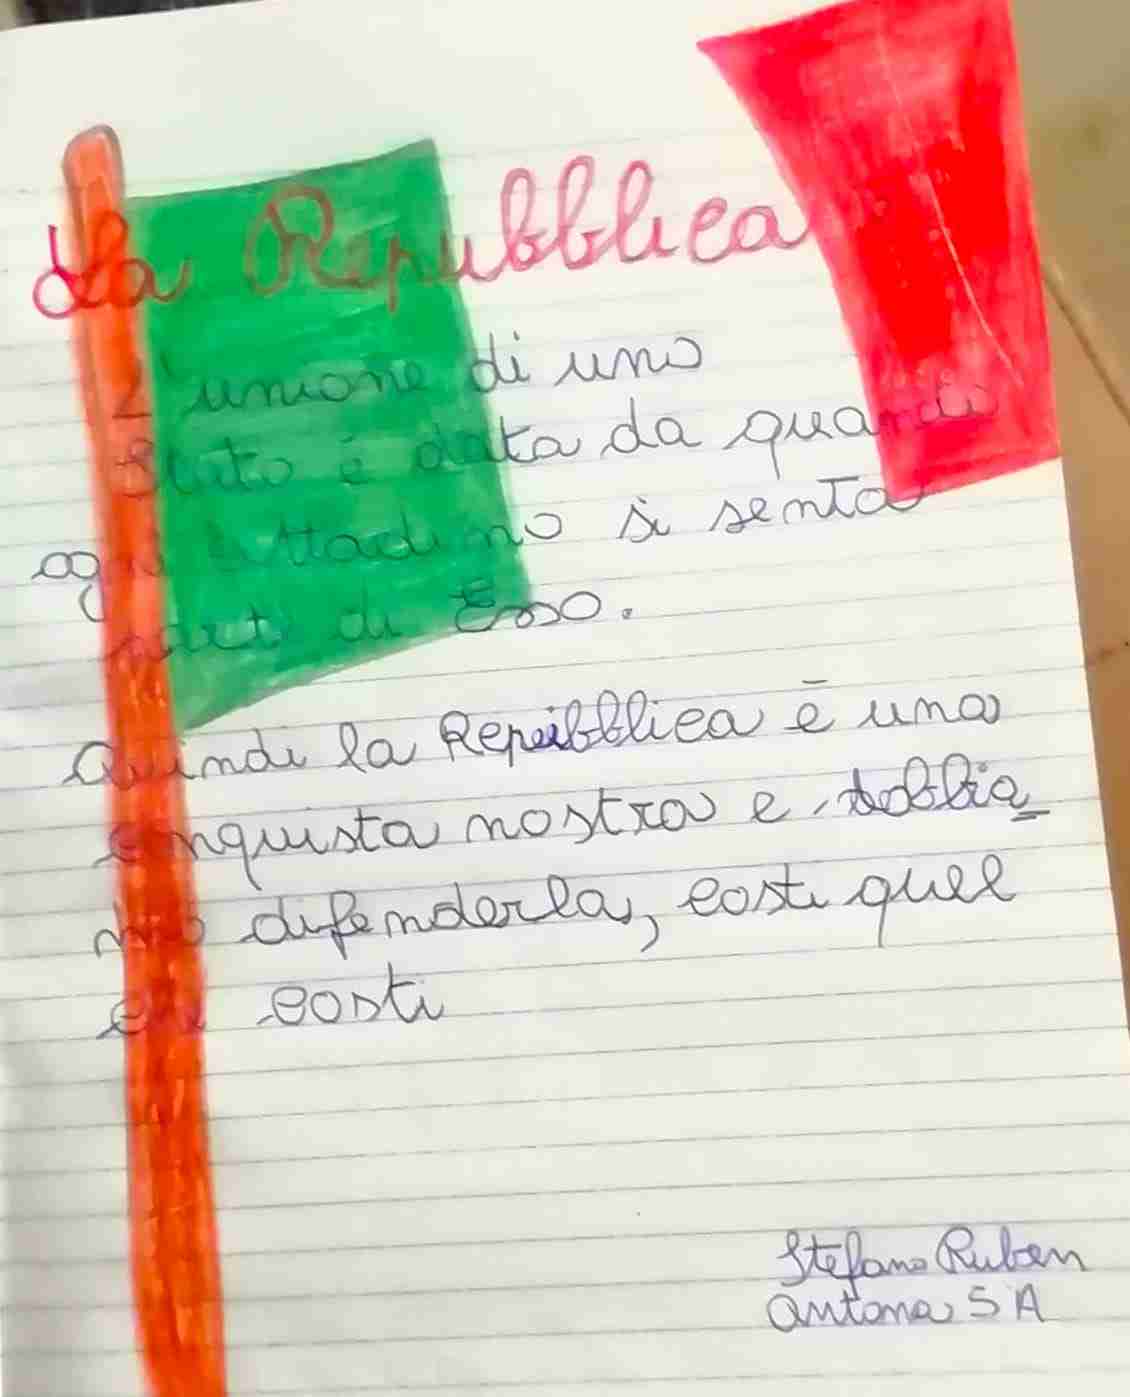 La Repubblica
L'unione di uno
Stato è data da quando
ogni cittadino si senta
parte di Esso.
Quindi la Repubblica è una
conquista nostra e dobbia
mo difenderla, costi quel
che costi
Stefano Ruben
Antona 5A